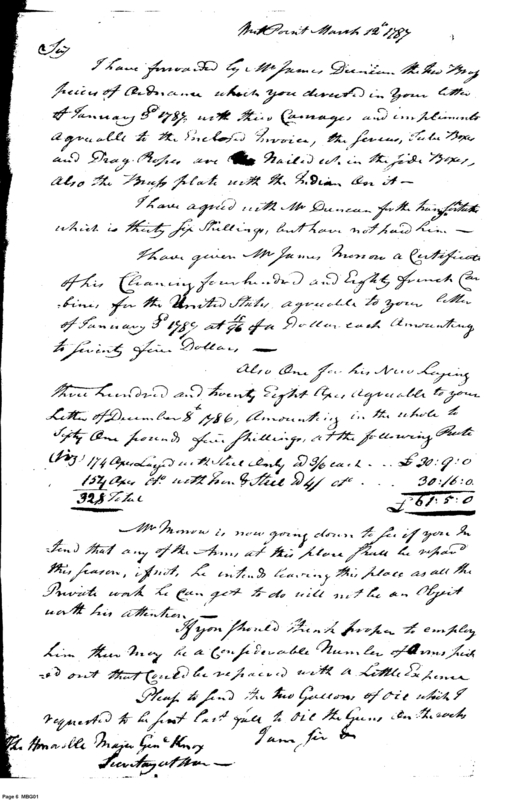 West Point March 12th 1787
Sir
I have forwarded by Mr James Duncan the two Brass
pieces of Ordnance which you directed in Your letter
of January 3d 1787 with their Carriages and impliments
agreeable to the Enclosed Invoice, the Tube Boxes
and Drag Ropes are Nailed up in the Side Boxes,
also the Brass plate with the Indian on it —
I have agreed with Mr Duncan for the transportation
which is thirty Six Shillings, but have not paid him —
I have given Mr James Morrow a Certificate
of his Cleaning four hundred and Eighty french Car
bines for the United States agreeable to your letter
of January 3d 1787 at 15/96 of a Dollar each Amounting
to Seventy five Dollars —
Also One for his New Laying
three hundred and twenty Eight Axes agreeable to your
Letter of December 8th 1786, Amounting in the whole to
Sixty One pounds five Shillings, at the following Rate
Viz 174 Axes Layed with Steel Only @ 3/6 each . . . £ 30:9:0
154 Axes do with Iron & Steel @ 4/ do . . 30:16:0
328 Total £ 61:5:0
Mr Morrow is now going down to see if you In
tend that any of the Arms at this place Shall be repaird
this Season, if not, he intends leaving this place as all the
Private work he can get to do will not be an Object
worth his attention
If you Should think proper to employ
him there may be a Considerable Number of Arms pick
=ed out that Could be repaired with a Little Expence
Please to send the two Gallons of Oil which I
requested to be sent last fall to Oil the Guns on the racks
I am Sir &
The Honorable Major Genl Knox
Secretary at War —
Page 6 MBG01